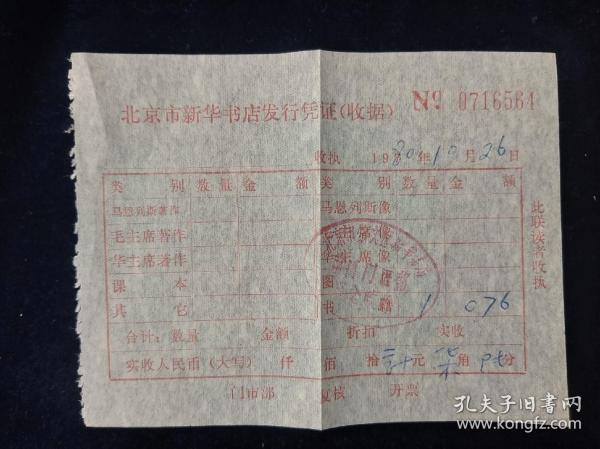 北京市新华书店发行凭证(收据) № 0716564
收执 1980年10月26日
类别 数量 金额 类别 数量 金额
马恩列斯著作 马恩列斯像
毛主席著作 毛主席像
华主席著作 华主席像
课本 图
其它 书籍 1 076
合计:数量 金额 折扣 实收
实收人民币(大写) 仟 佰 拾 元 柒角 分
门市部 复核 开票
此联读者收执
孔夫子旧书网
www.kongfz.com